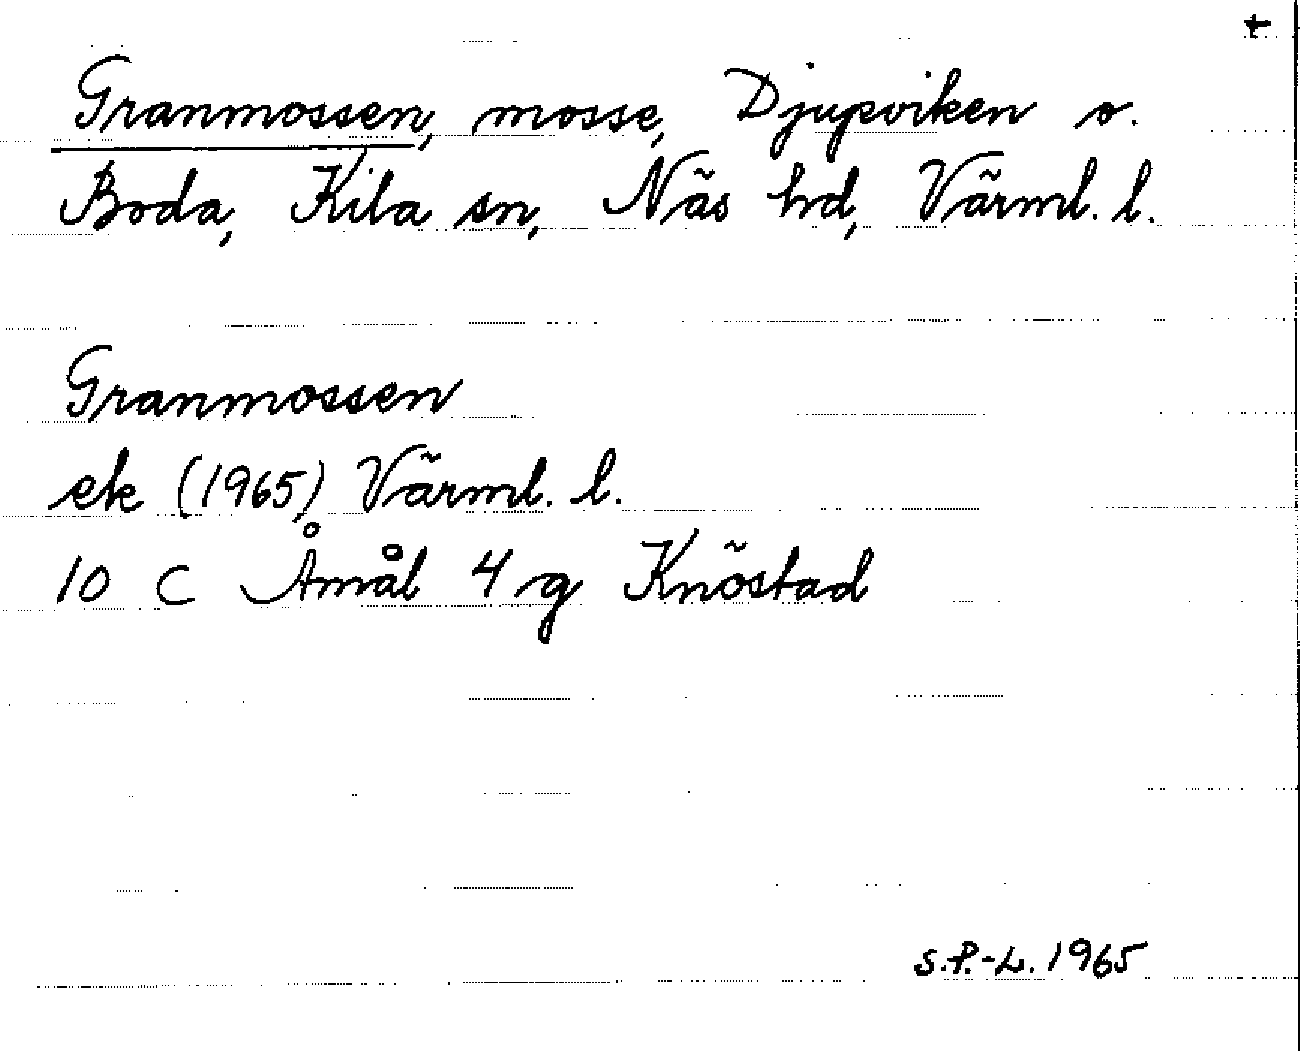 +
Granmossen, mosse, Djupviken o.
Boda, Kila sn, Näs hd, Värml. l.
Granmossen
ek (1965) Värml. l.
10 C Åmål 4 g Knöstad
S.P.-L. 1965